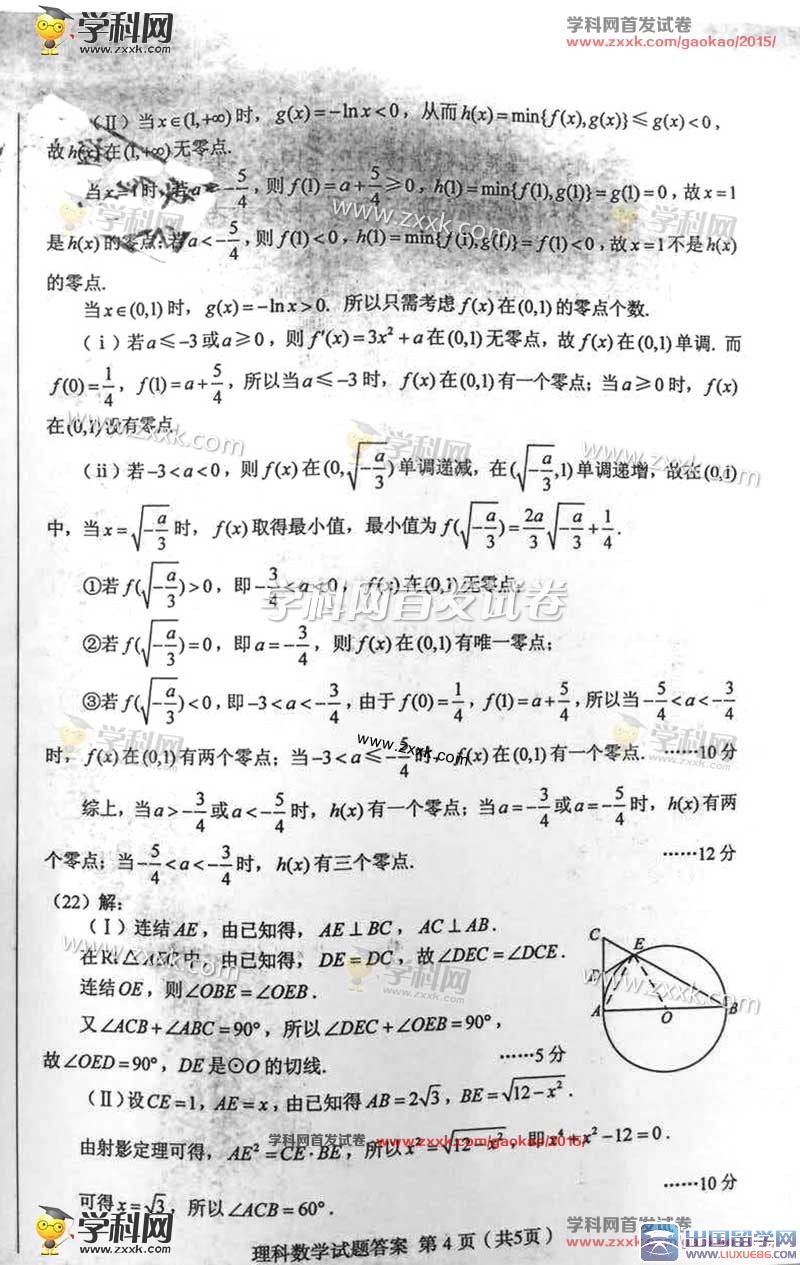 学科网
www.zxxk.com
学科网首发试卷
www.zxxk.com/gaokao/2015/
(Ⅱ)当x∈(1,+∞)时，g(x)=-lnx<0，从而h(x)=min{f(x),g(x)}≤g(x)<0，
故h(x)在(1,+∞)无零点.
当x=1时,若a≥-5/4，则f(1)=a+5/4≥0，h(1)=min{f(1),g(1)}=g(1)=0，故x=1
是h(x)的零点;若a<-5/4，则f(1)<0，h(1)=min{f(1),g(1)}=f(1)<0，故x=1不是h(x)
的零点.
当x∈(0,1)时，g(x)=-lnx>0. 所以只需考虑f(x)在(0,1)的零点个数.
(ⅰ)若a≤-3或a≥0，则f′(x)=3x²+a在(0,1)无零点，故f(x)在(0,1)单调. 而
f(0)=1/4，f(1)=a+5/4，所以当a≤-3时，f(x)在(0,1)有一个零点；当a≥0时，f(x)
在(0,1)没有零点.
(ⅱ)若-3<a<0，则f(x)在(0,√(-a/3))单调递减，在(√(-a/3),1)单调递增，故在(0,1)
中，当x=√(-a/3)时，f(x)取得最小值，最小值为f(√(-a/3))=2a/3√(-a/3)+1/4.
①若f(√(-a/3))>0，即-3/4<a<0，f(x)在(0,1)无零点;
②若f(√(-a/3))=0，即a=-3/4，则f(x)在(0,1)有唯一零点；
③若f(√(-a/3))<0，即-3<a<-3/4，由于f(0)=1/4，f(1)=a+5/4，所以当-5/4<a<-3/4
时，f(x)在(0,1)有两个零点；当-3<a≤-5/4时，f(x)在(0,1)有一个零点. ……10分
综上，当a>-3/4或a<-5/4时，h(x)有一个零点；当a=-3/4或a=-5/4时，h(x)有两
个零点；当-5/4<a<-3/4时，h(x)有三个零点. ……12分
(22)解：
(Ⅰ)连结AE，由已知得，AE⊥BC，AC⊥AB.
在Rt△AEC中，由已知得，DE=DC，故∠DEC=∠DCE.
连结OE，则∠OBE=∠OEB.
又∠ACB+∠ABC=90°，所以∠DEC+∠OEB=90°，
故∠OED=90°，DE是⊙O的切线. ……5分
C
E
D
A
O
B
(Ⅱ)设CE=1，AE=x，由已知得AB=2√3，BE=√(12-x²).
由射影定理可得，AE²=CE·BE，所以x²=√(12-x²)，即x⁴+x²-12=0.
学科网首发试卷 www.zxxk.com/gaokao/2015/
可得x=√3，所以∠ACB=60°. ……10分
理科数学试题答案 第4页（共5页）
学科网
www.zxxk.com
学科网首发试卷
www.zxxk.com/gaokao/2015/
出国留学网
WWW.LIUXUE86.COM